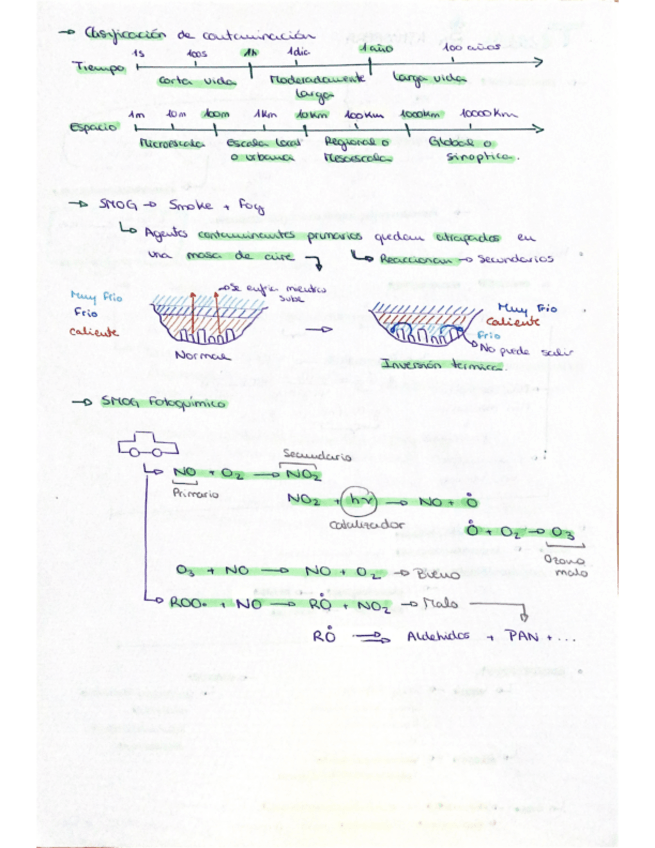 → Clasificación de contaminación
1s 100s 1h 1día 1año 100 años
Tiempo
corta vida Moderadamente larga Larga vida
1m 10m 100m 1Km 10Km 100Km 1000Km 10000Km
Espacio
Microescala Escala local o urbana Regional o Mesoescala Global o sinoptica.
→ SMOG → Smoke + Fog
↳ Agentes contaminantes primarios quedan atrapados en
una masa de aire ↳ Reaccionan → Secundarios
→ Se enfría mientras sube
Muy Frio
Frio
caliente
Normal
→
Muy Frio
Caliente
Frio
No puede salir
Inversión termica.
→ SMOG Fotoquímico
Secundario
↳ NO + O₂ → NO₂
Primario
NO₂ + hν → NO + Ȯ
catalizador
Ȯ + O₂ → O₃
Ozono malo
O₃ + NO → NO + O₂ → Bueno
↳ ROO• + NO → RȮ + NO₂ → Malo
RȮ ⇉ Aldehidos + PAN + ...